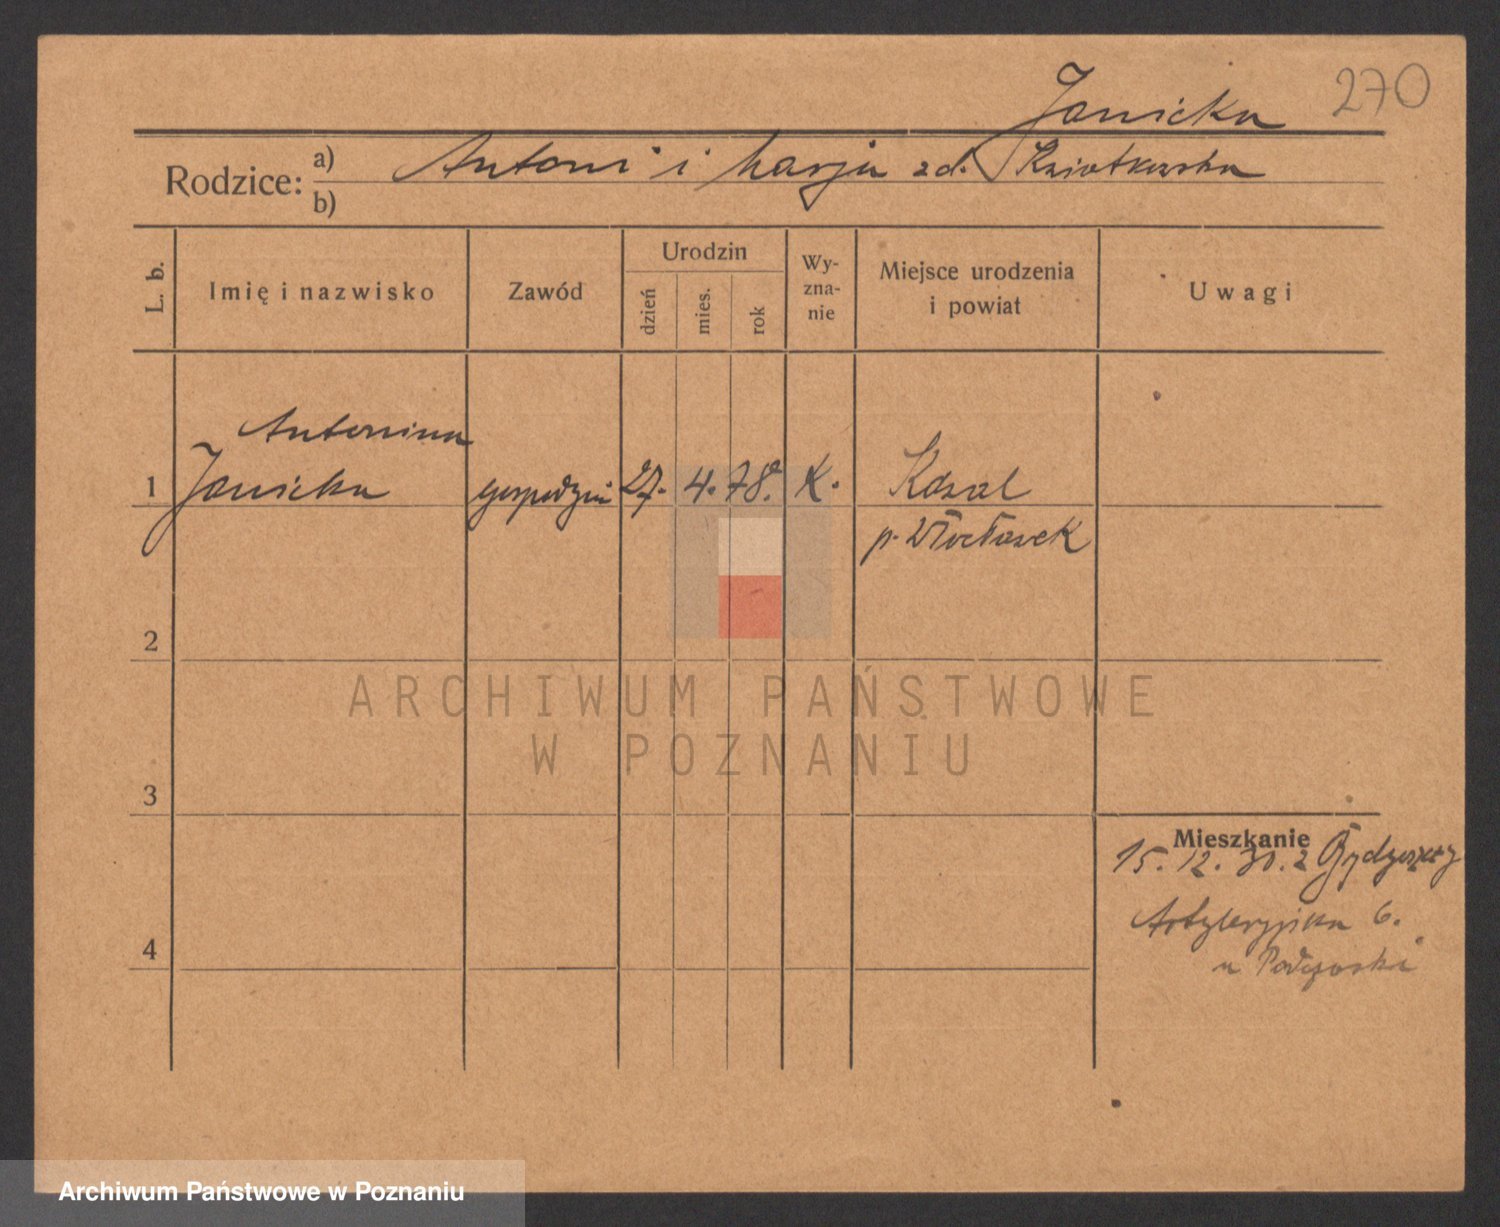 270
Janicka
Rodzice: a) Antoni i Marja zd. Kwiatkowska
b)
L. b.
Imię i nazwisko
Zawód
Urodzin
dzień
mies.
rok
Wy-
zna-
nie
Miejsce urodzenia
i powiat
Uwagi
Antonina
1 Janicka gospodyni 27. 4. 78. K. Kowal
p. Włocławek
2
3
4
Mieszkanie
15. 12. 30. z Bydgoszczy
Artyleryjska 6.
u
ARCHIWUM PAŃSTWOWE
W POZNANIU
Archiwum Państwowe w Poznaniu